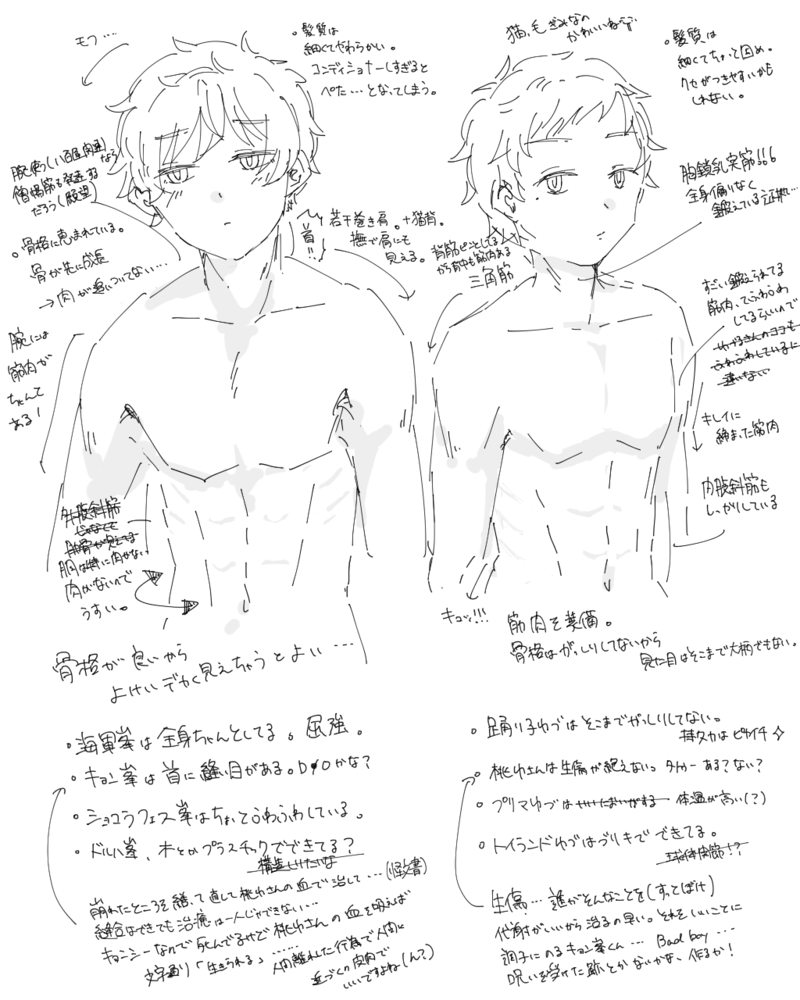 モフ…
・髪質は
細くてやわらかい。
コンディショナーしすぎると
ぺた…となってしまう。
猫っ毛ぎみなの
かわいいね
・髪質は
細くてちょっと固め。
クセがつきやすいかも
しれない。
なら
僧帽筋も発達
だろう(願望)
・骨格に恵まれている。
骨が先に成長
→肉が追いついてない…
首!!
若干巻き肩。+猫背。
撫で肩にも
見える。
胸鎖乳突筋!!!
全身偏りなく
鍛えている証拠…
背筋ピンとしてる
から背中も筋肉ある
三角筋
腕には
筋肉が
ちゃんと
ある!
すごい鍛えられてる
筋肉、でふわふわ
してるらしいので
キレイに
締まった筋肉
内腹斜筋も
しっかりしている
外腹斜筋
肉がないので
うすい。
キュッ!!!
筋肉を装備。
骨格はがっしりしてないから
見た目はそこまで大柄でもない。
骨格が良いから
よけいデカく見えちゃうとよい…
・海軍峯は全身ちゃんとしてる。屈強。
・キョン峯は首に縫い目がある。DIOかな?
・ショコラフェス峯はちょっとふわふわしている。
・ドルい峯、木とかプラスチックでできてる?
崩れたところを縫って直して桃ゆさんの血で治して…(怪文書)
縫合はできても治癒は一人じゃできない…
キョンシーなので死んでるけど桃ゆさんの血を吸えば
文字通り「生きられる」……
人間離れした行為で人間に
近づくの皮肉で
いいですよね(ん?)
・踊り子ゆづはそこまでがっしりしてない。
・桃ゆさんは生傷が絶えない。タトゥーある?ない?
・プリマゆづは
体温が高い(?)
・トイランドゆづはブリキでできてる。
球体関節!?
生傷…誰がそんなことを(すっとぼけ)
代謝がいいから治るの早い。それをいいことに
調子にのるキョン峯くん… Bad boy…
呪いを受けた跡とかないかない、作るか!